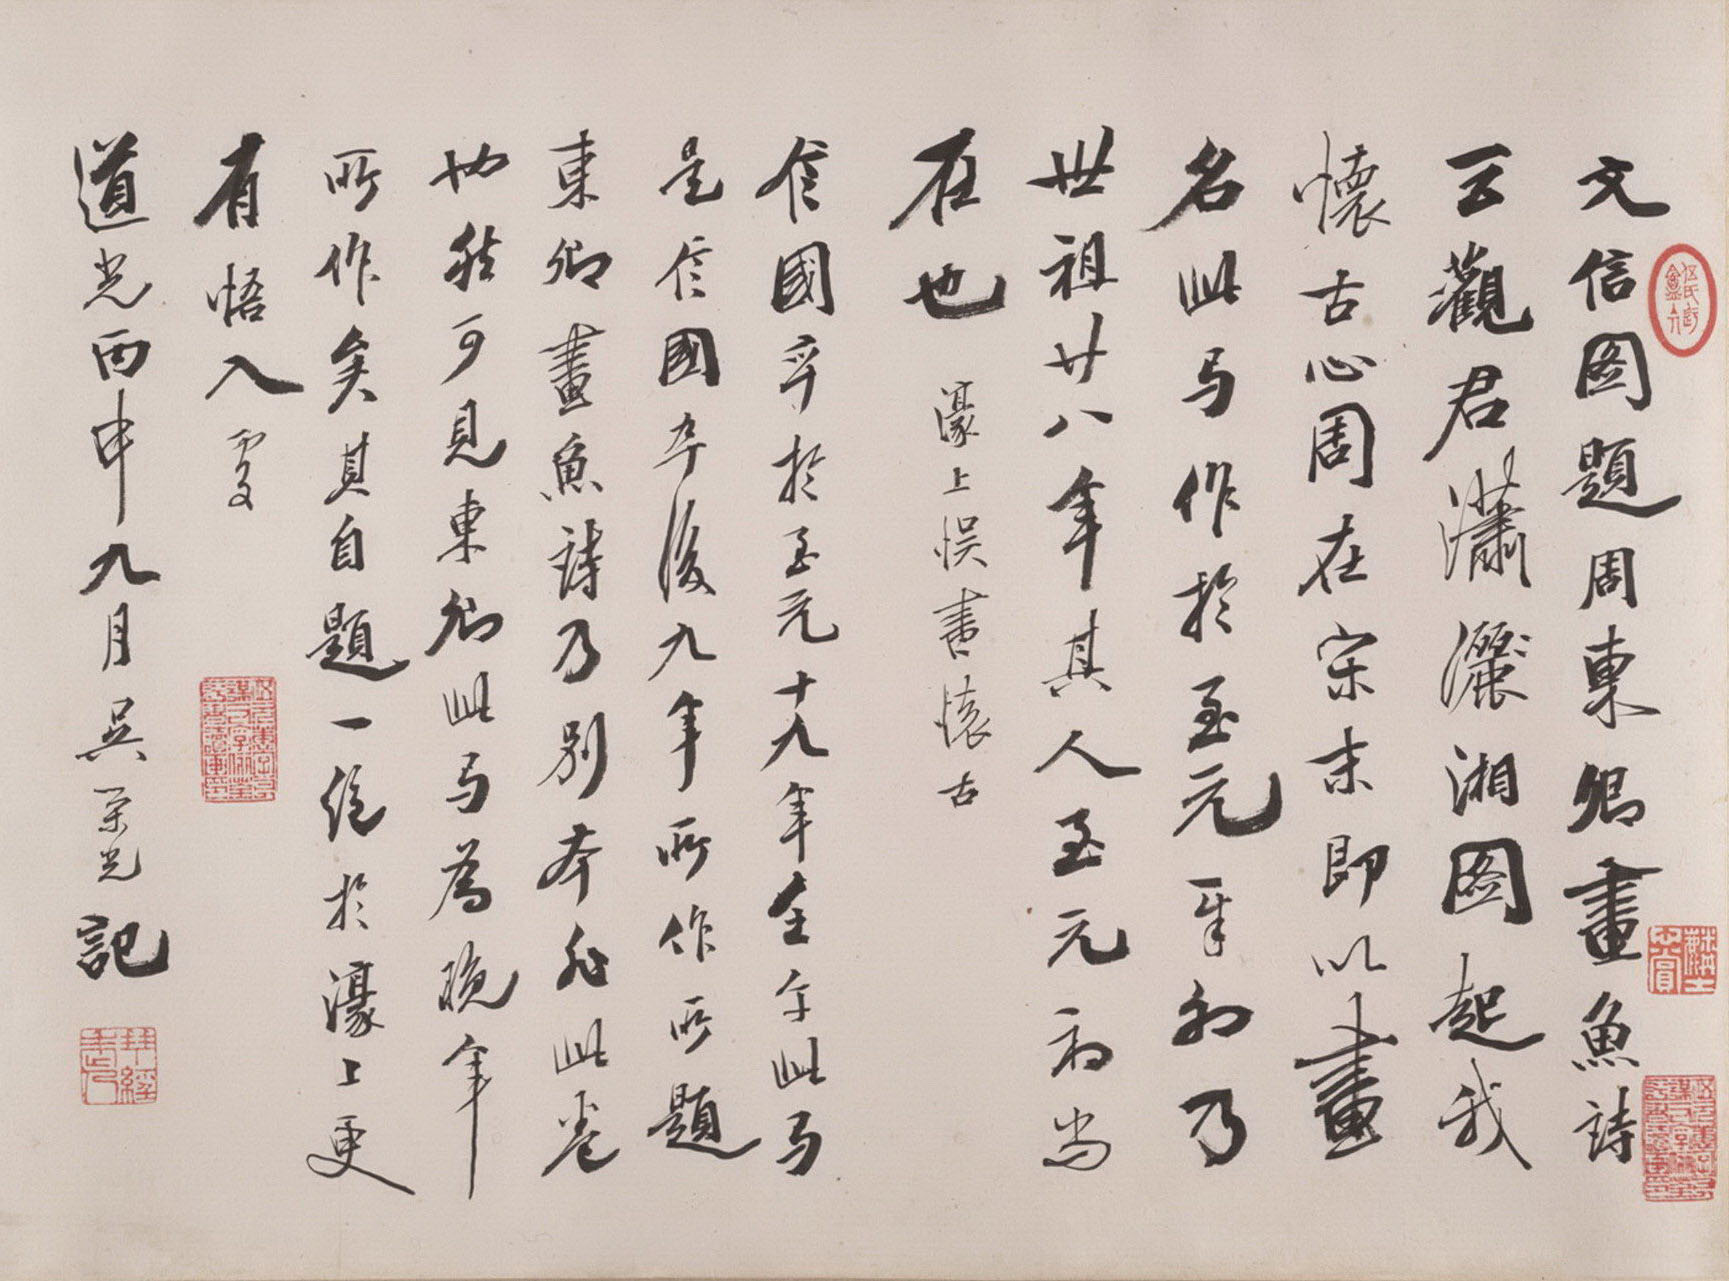 文信國題周東卿畫魚詩
云觀君瀟灑湘圖起我
懷古心周在宋末即以畫
名此弓作於至元辛卯乃
世祖廿八年其人至元初尚
在也 濠上悮書懷古
信國卒於至元十九年壬午此弓
是信國卒後九年所作所題
東卿畫魚詩乃別本非此卷
也然可見東卿此弓為晚年
所作矣其自題一絕於濠上更
有悟入處
道光丙申九月吳榮光記